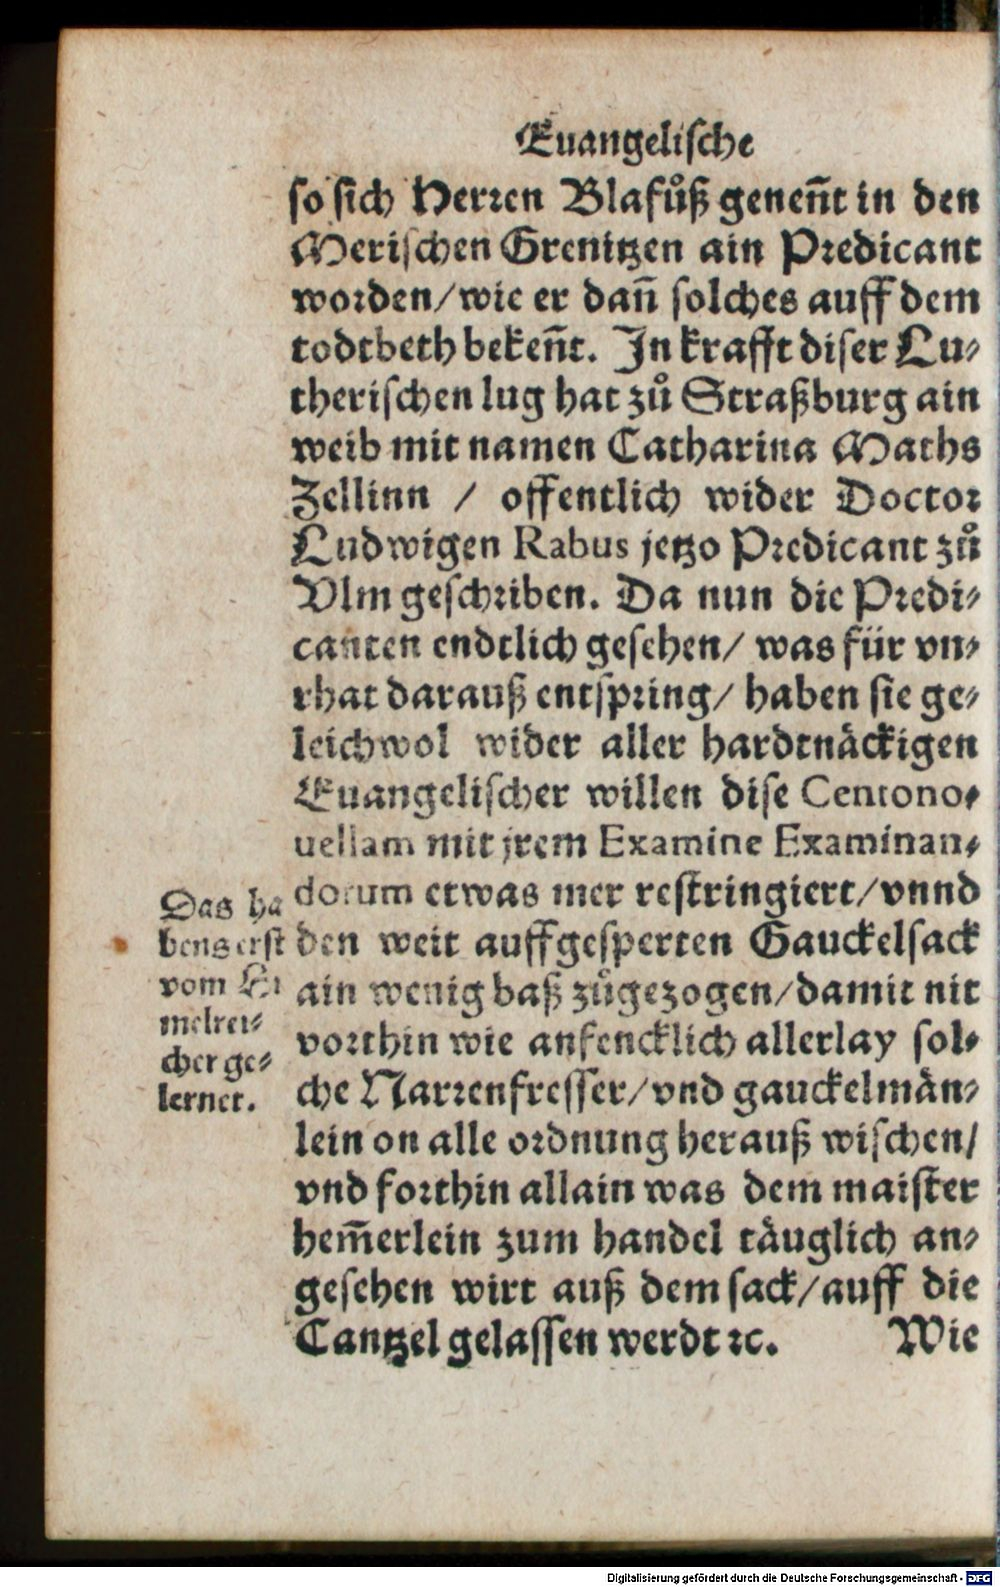 Euangelische
so sich Herren Blafůß geneñt in den
Merischen Grenitzen ain Predicant
worden/wie er dañ solches auff dem
todtbeth bekeñt. In krafft diser Lu-
therischen lug hat zů Straßburg ain
weib mit namen Catharina Maths
Zellinn / offentlich wider Doctor
Ludwigen Rabus jetzo Predicant zů
Vlm geschriben. Da nun die Predi-
canten endtlich gesehen/ was für vn-
rhat darauß entspring/ haben sie ge-
leichwol wider aller hardtnäckigen
Euangelischer willen dise Centono-
uellam mit jrem Examine Examinan-
dorum etwas mer restringiert/vnnd
den weit auffgesperten Gauckelsack
ain wenig baß zůgezogen/damit nit
vorthin wie anfencklich allerlay sol-
che Narrenfresser/vnd gauckelmän-
lein on alle ordnung herauß wischen/
vnd forthin allain was dem maister
hem̃erlein zum handel täuglich an-
gesehen wirt auß dem sack/auff die
Cantzel gelassen werdt ꝛc. Wie
Das ha
bens erst
vom Hi
melrei-
cher ge-
lernet.
Digitalisierung gefördert durch die Deutsche Forschungsgemeinschaft - DFG